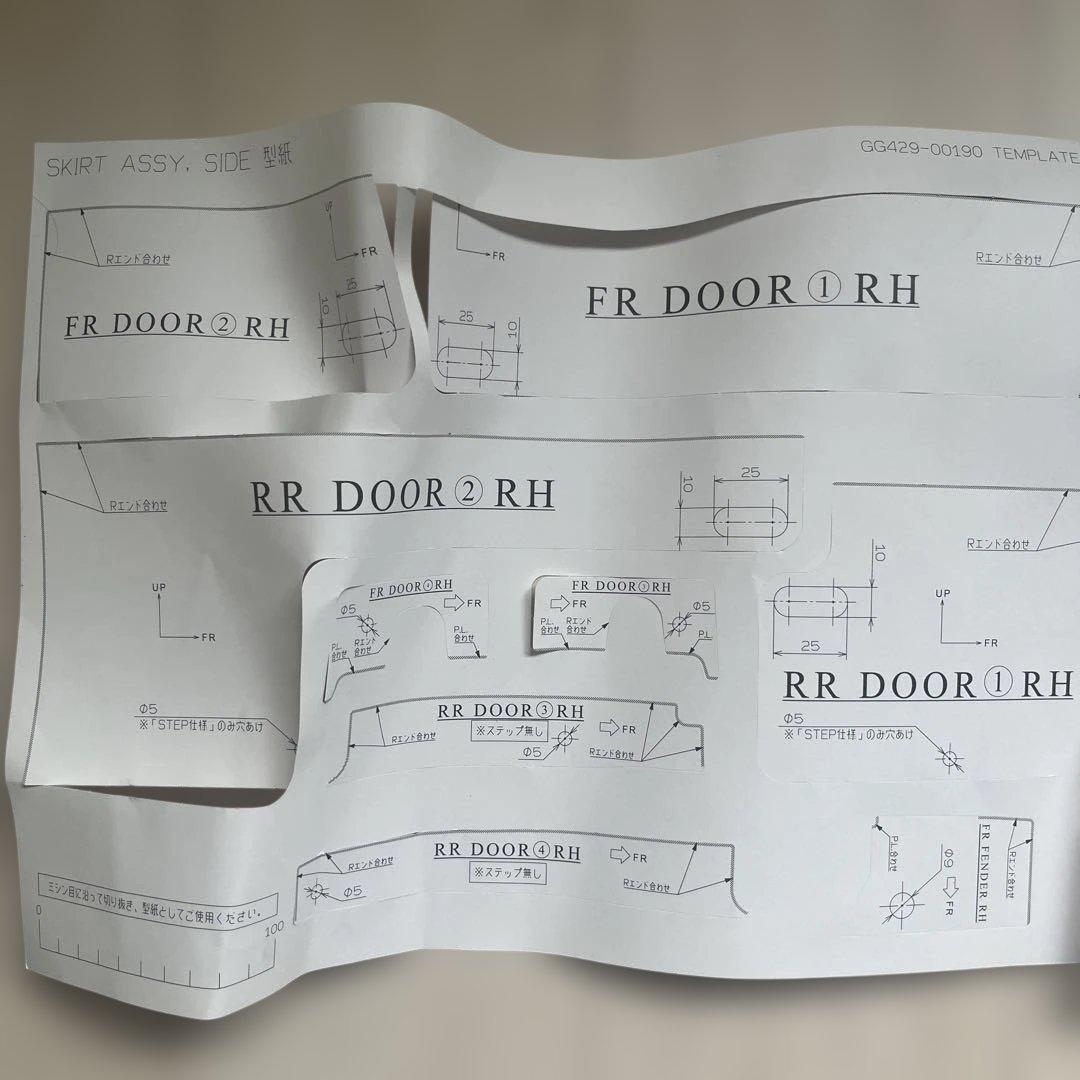 SKIRT ASSY, SIDE 型紙
GG429-00190 TEMPLATE
UP
FR
Rエンド合わせ
25
10
FR DOOR②RH
FR
Rエンド合わせ
25
10
FR DOOR①RH
Rエンド合わせ
RR DOOR②RH
25
10
UP
FR
Φ5
※「STEP仕様」のみ穴あけ
Rエンド合わせ
10
25
UP
FR
RR DOOR①RH
Φ5
※「STEP仕様」のみ穴あけ
FR DOOR④RH
FR
Φ5
P.L.
合わせ
Rエンド
合わせ
P.L.
合わせ
FR DOOR③RH
FR
Φ5
P.L.
合わせ
Rエンド
合わせ
P.L
RR DOOR③RH
※ステップ無し
FR
Φ5
Rエンド合わせ
Rエンド合わせ
RR DOOR④RH
※ステップ無し
FR
Rエンド合わせ
Φ5
Rエンド合わせ
P.L合わせ
Φ9
FR
FR FENDER RH
Rエンド合わせ
ミシン目に沿って切り抜き、型紙としてご使用ください。
0
100